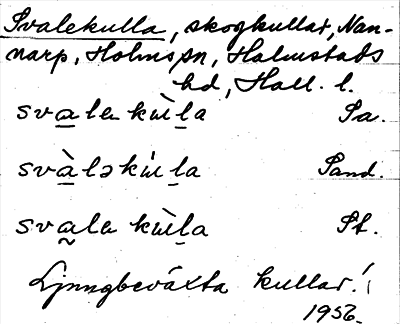 Svalekulla, skogkullar, Nan-
narp, Holms sn, Halmstads
hd, Hall. l.
svale kùla Sa.
svàlə kúla Sand.
svale kùla St.
Ljungbeväxta kullar!
1956.